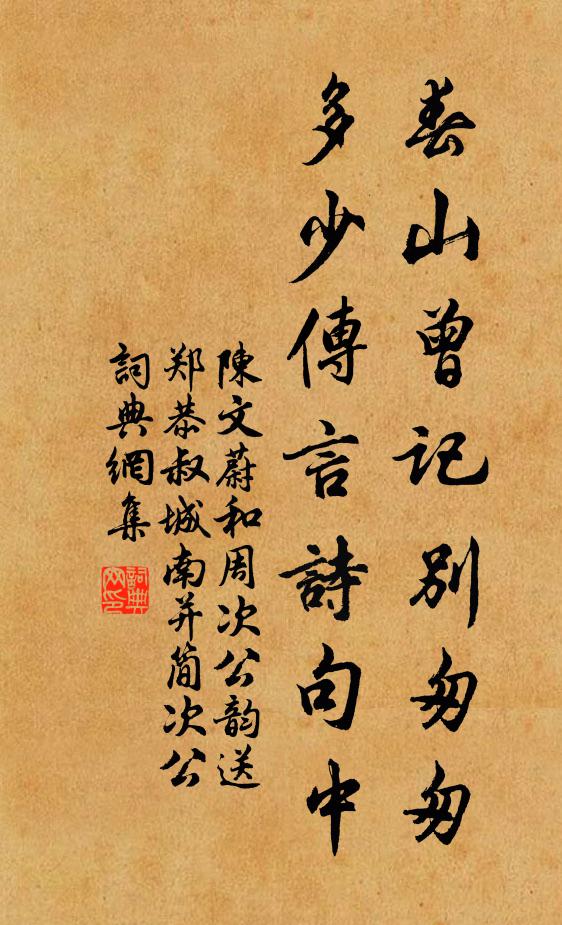 春山曾記別匆匆
多少傳言詩句中
陳文蔚和周次公韵送
郑恭叔城南并简次公
詞典網集
詞典
网印